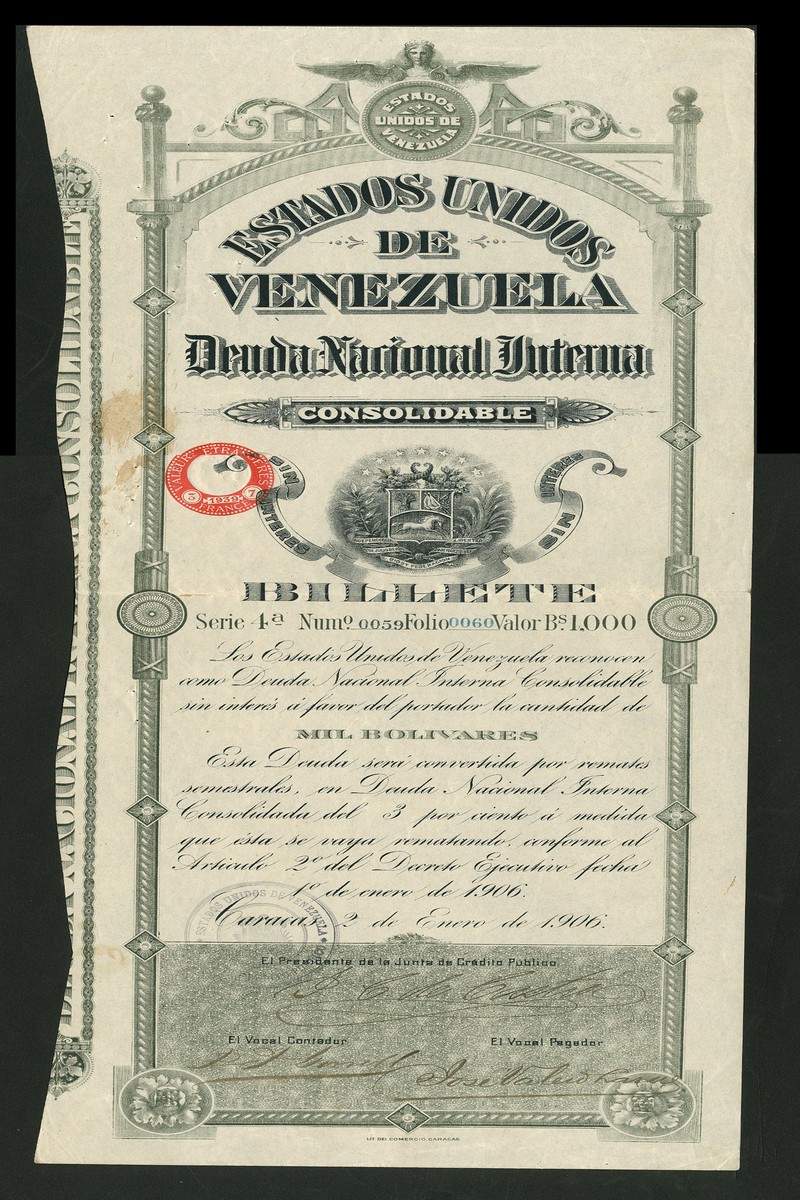 ESTADOS
UNIDOS DE
VENEZUELA
ESTADOS UNIDOS
DE
VENEZUELA
Deuda Nacional Interna
CONSOLIDABLE
VALEUR ETRANGERES
3 1939 7
FRANCE
SIN
INTERES
SIN
INTERES
BILLETE
Serie 4ª Numº 0059 Folio 0060 Valor Bs. 1,000
Los Estados Unidos de Venezuela reconocen
como Deuda Nacional Interna Consolidable
sin interés á favor del portador la cantidad de
MIL BOLIVARES
Esta Deuda será convertida por remates
semestrales, en Deuda Nacional Interna
Consolidada del 3 por ciento á medida
que ésta se vaya rematando, conforme al
Artículo 2º del Decreto Ejecutivo fecha
1º de enero de 1906.
Caracas, 2 de Enero de 1906.
ESTADOS UNIDOS DE VENEZUELA
El Presidente de la Junta de Crédito Público,
El Vocal Contador
El Vocal Pagador
LIT. DEL COMERCIO, CARACAS